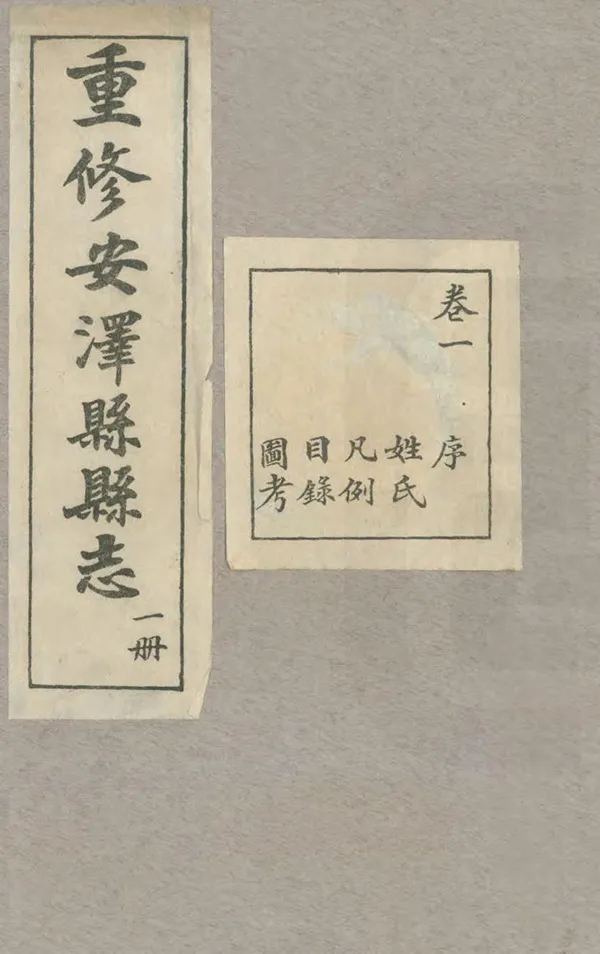 重修安澤縣縣志
一册
卷一
序
姓氏
凡例
目錄
圖考